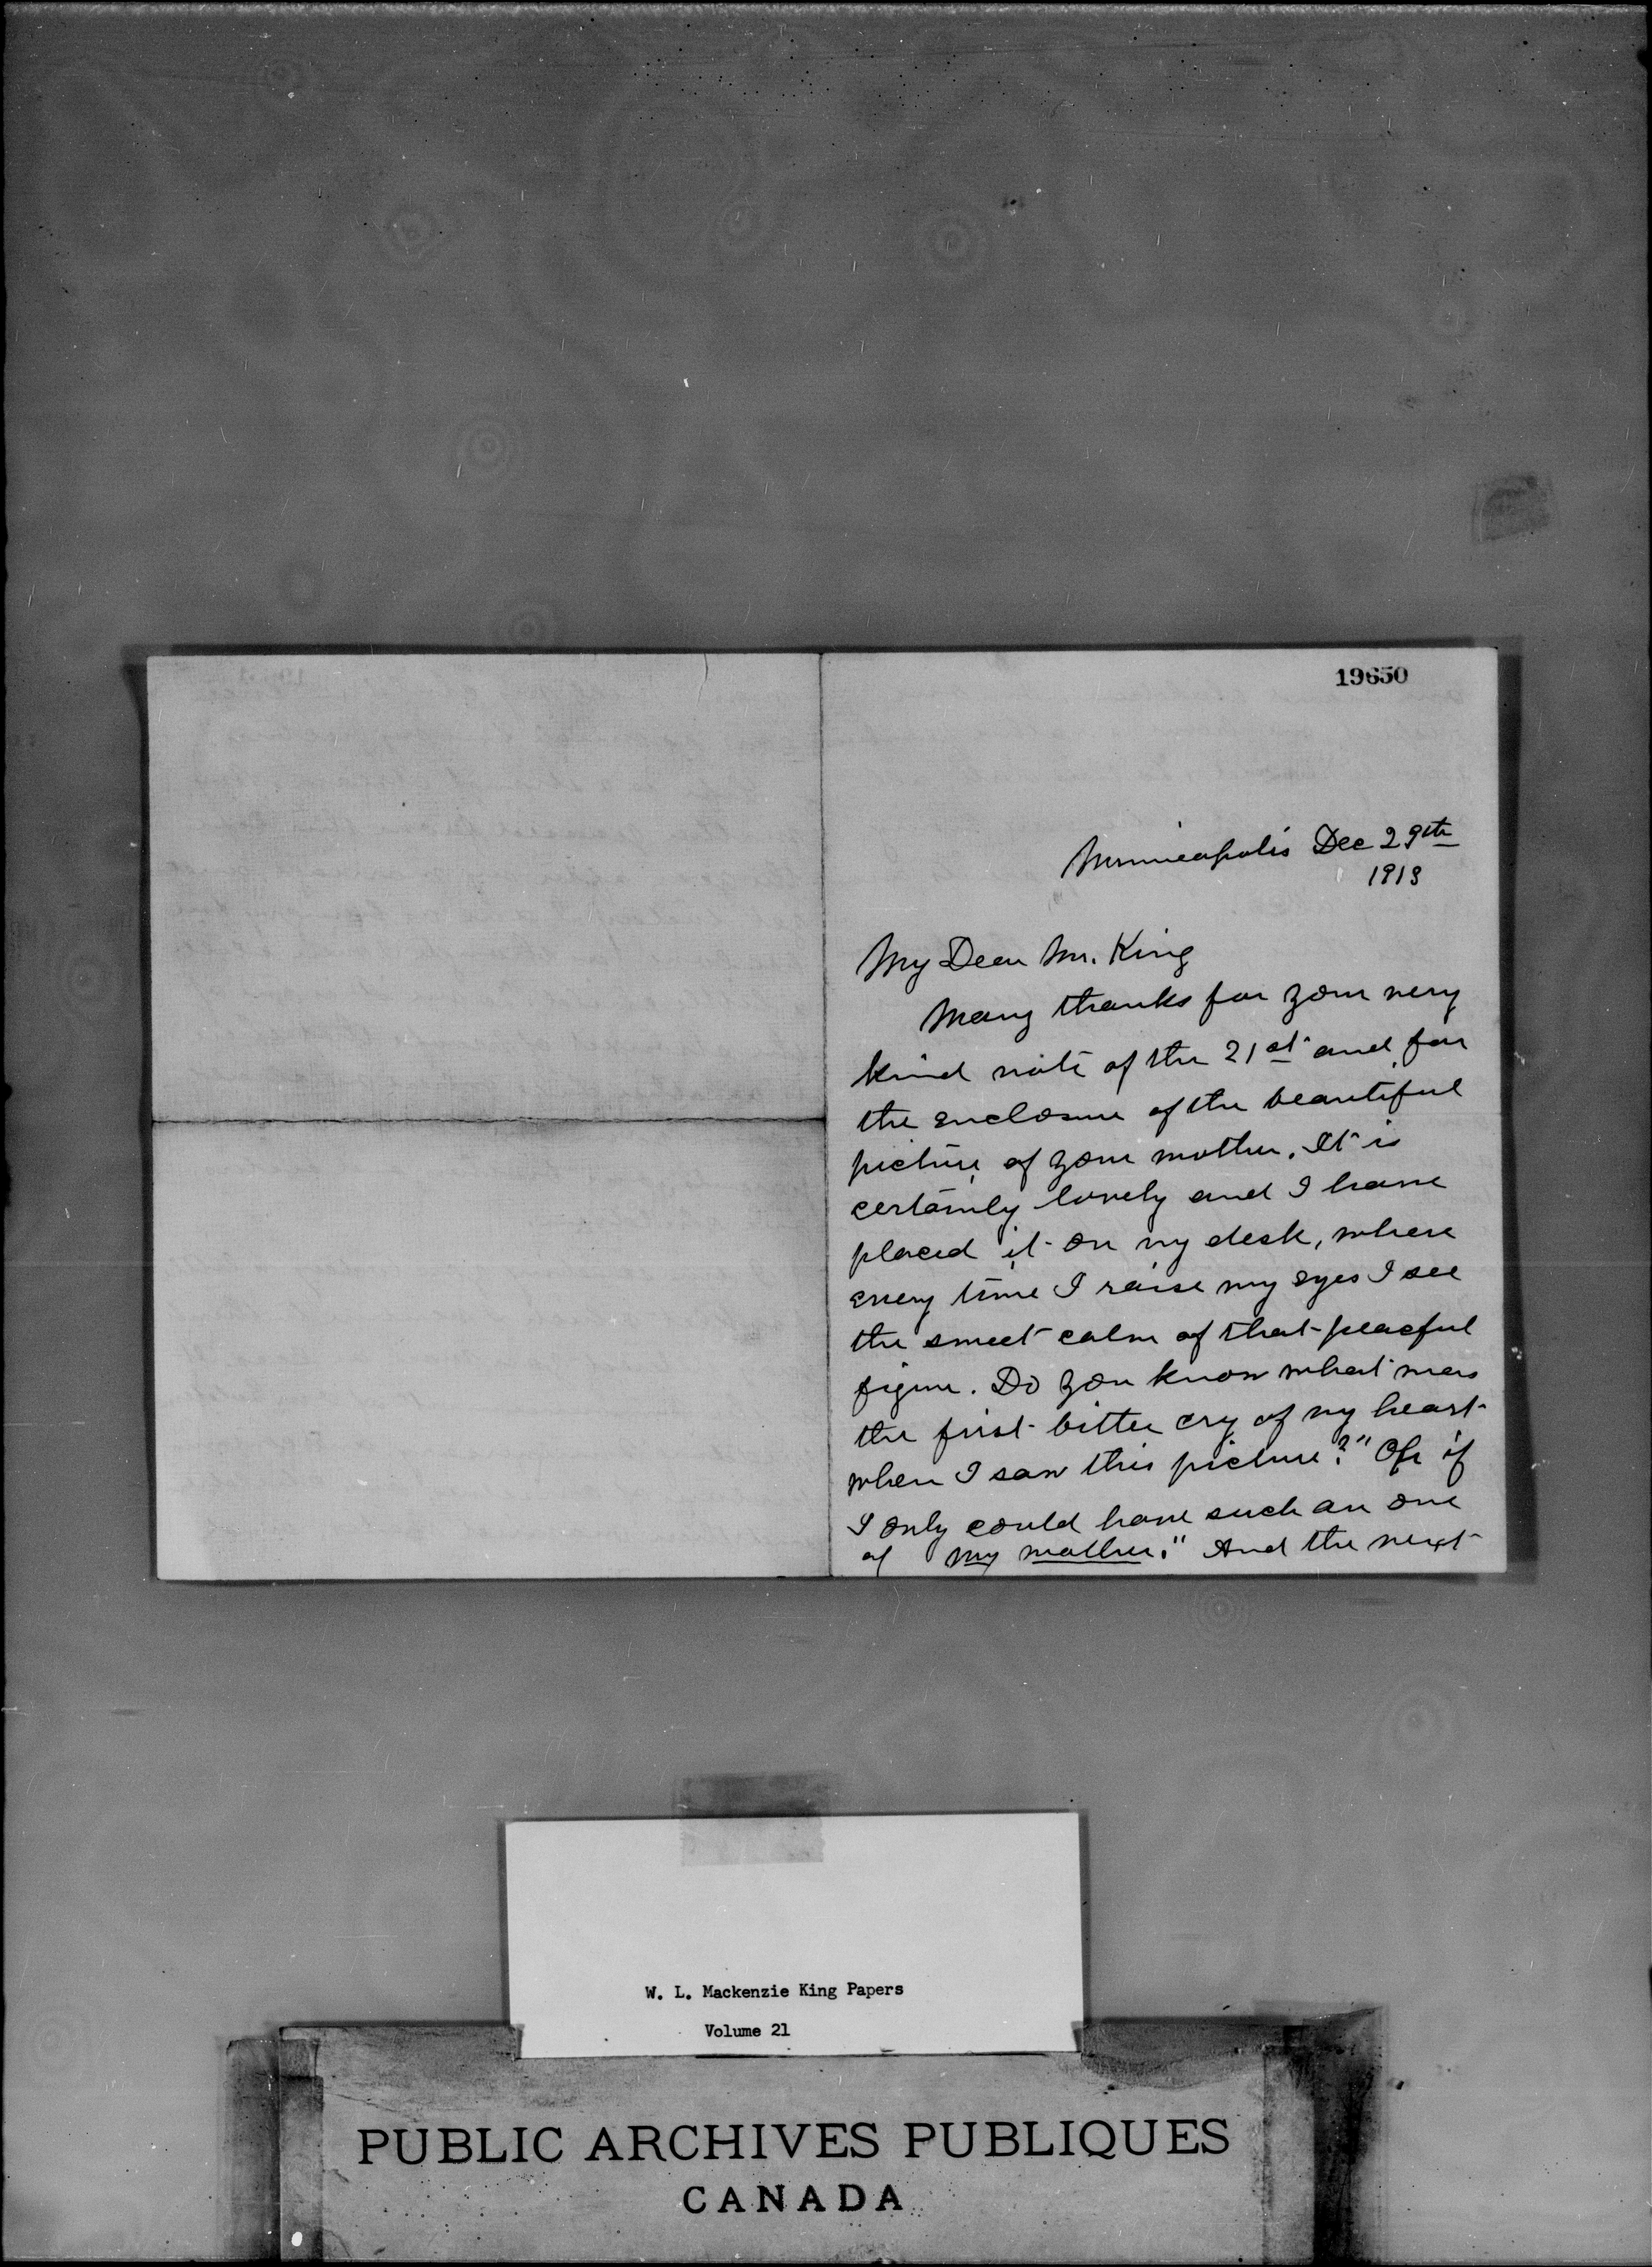 19650
Minneapolis Dec 29th
1913
My Dear Mr. King
Many thanks for your very
kind note of the 21st and for
the enclosure of the beautiful
picture of your mother. It is
certainly lovely and I have
placed it on my desk, where
every time I raise my eyes I see
the sweet calm of that peaceful
figure. Do you know what was
the first bitter cry of my heart
when I saw this picture? "Oh if
I only could have such an one
of my mother." And the next
W. L. Mackenzie King Papers
Volume 21
PUBLIC ARCHIVES PUBLIQUES
CANADA